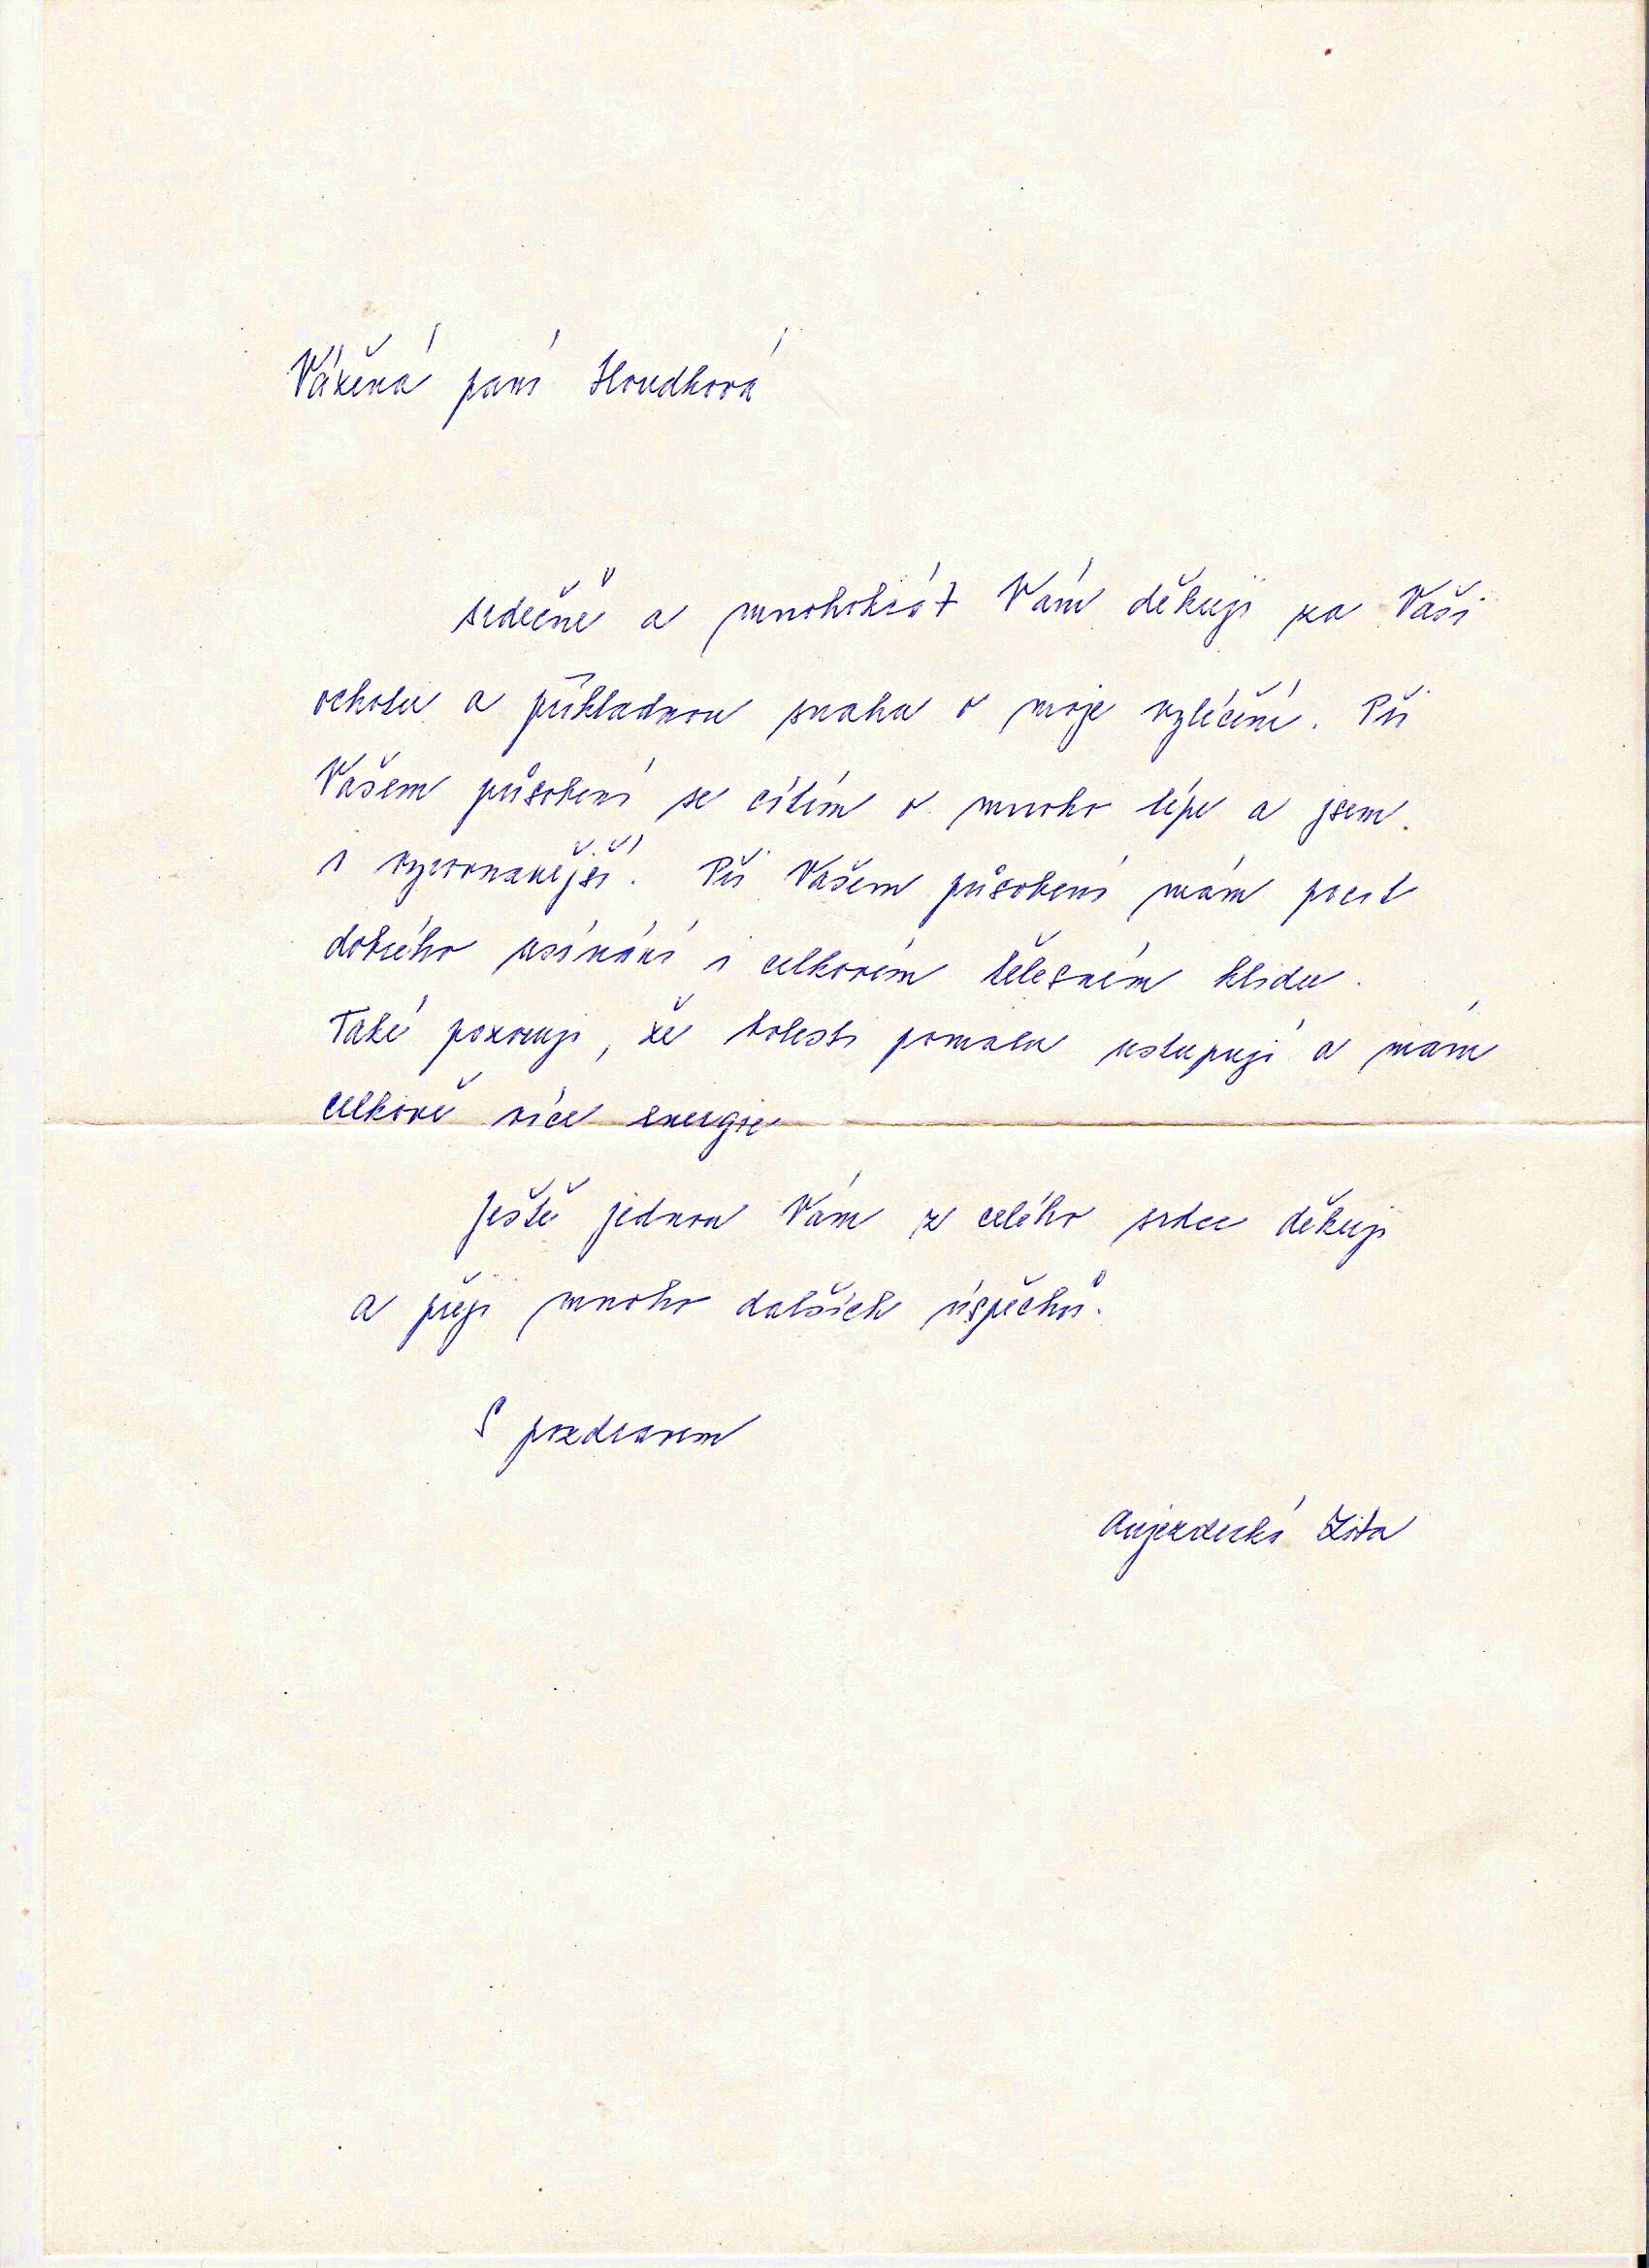 Vážená paní Houdková
srdečně a mnohokrát Vám děkuji za Vaši
ochotu a příkladnou snahu o moje vyléčení. Při
Vašem působení se cítím o mnoho lépe a jsem
i vyrovnanější. Při Vašem působení mám pocit
dobrého usínání i celkovém tělesném klidu.
Také pozoruji, že bolesti pomalu ustupují a mám
celkově více energie
Ještě jednou Vám z celého srdce děkuji
a přeji mnoho dalších úspěchů.
S pozdravem
Aujezdecká Zita